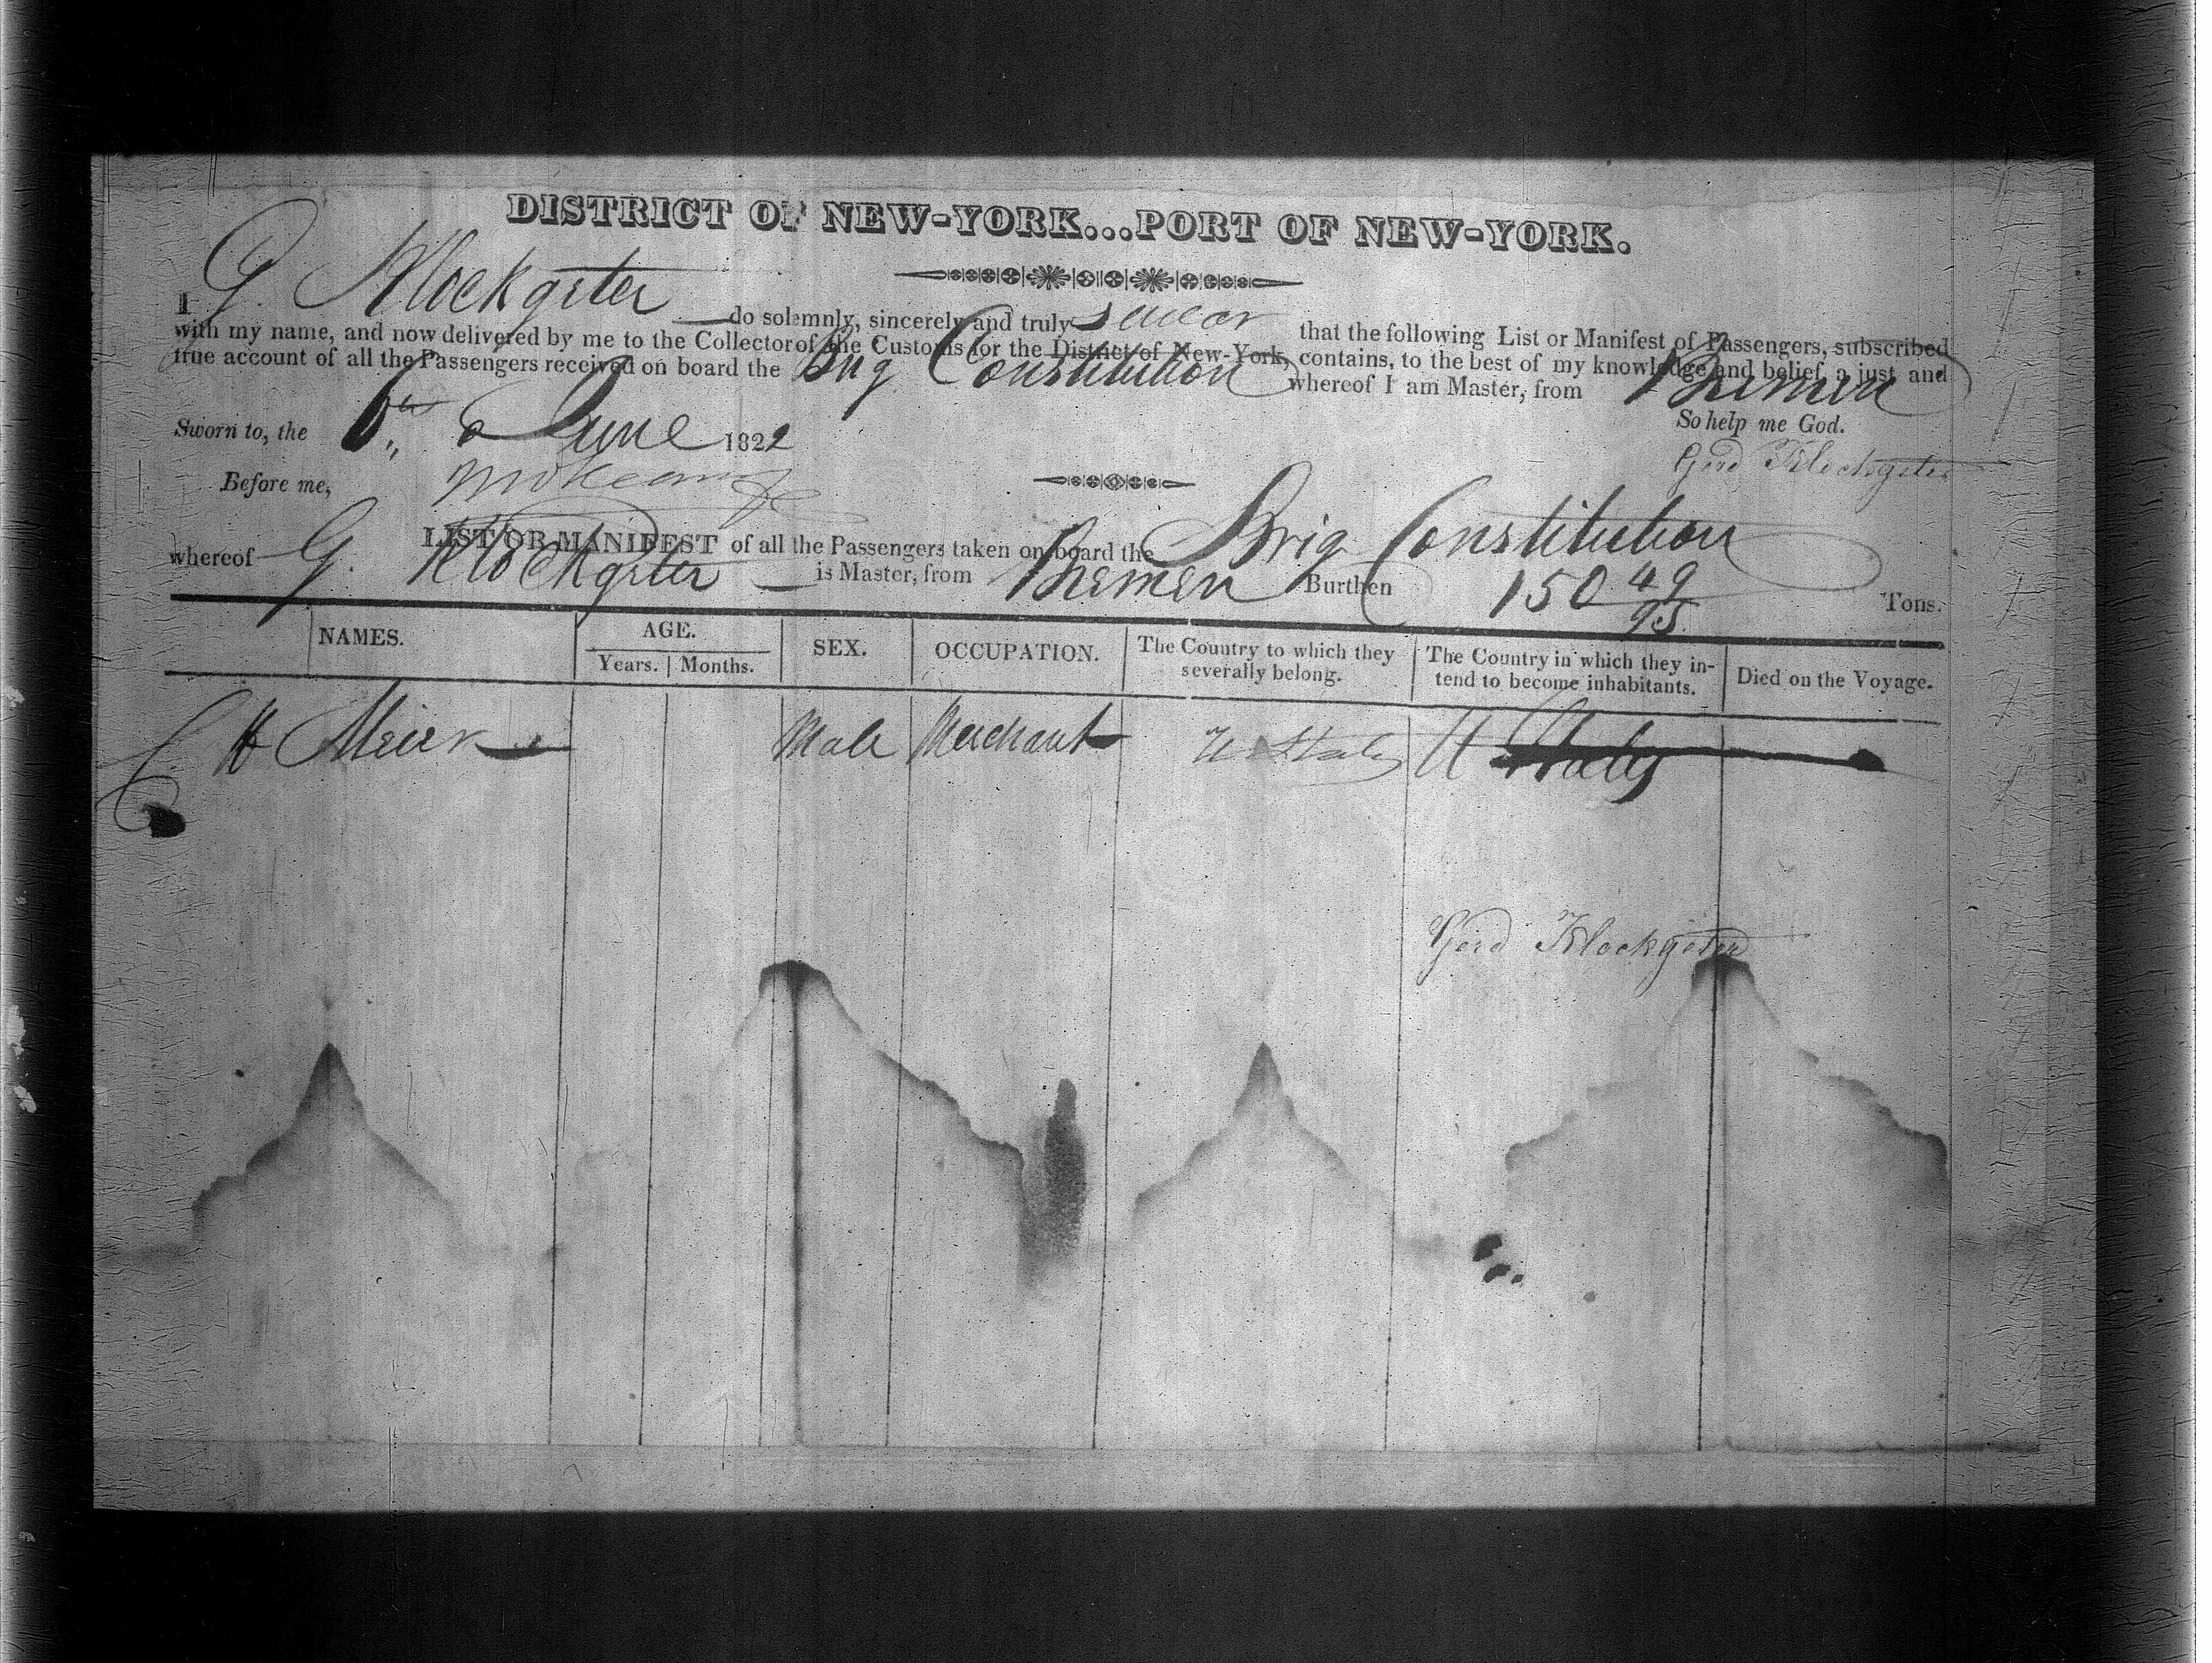 DISTRICT OF NEW-YORK...PORT OF NEW-YORK.
I G. Klockgeter do solemnly, sincerely and truly swear that the following List or Manifest of Passengers, subscribed
with my name, and now delivered by me to the Collector of the Customs for the District of New-York, contains, to the best of my knowledge and belief, a just and
true account of all the Passengers received on board the Brig Constitution whereof I am Master, from Bremen
So help me God.
Sworn to, the 6th June 1822
Gerd Klockgeter
Before me,
LIST OR MANIFEST of all the Passengers taken on board the Brig Constitution
whereof G. Klockgeter is Master, from Bremen Burthen 150 49/95 Tons.
NAMES. AGE. SEX. OCCUPATION. The Country to which they severally belong. The Country in which they intend to become inhabitants. Died on the Voyage.
Years. Months.
C H Meier Male Merchant U States U States
Gerd Klockgeter